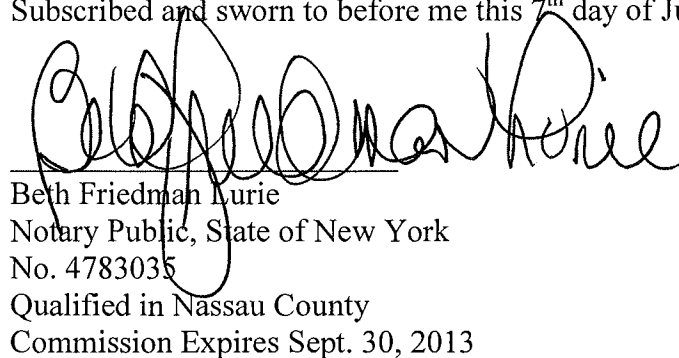 Subscribed and sworn to before me this 7th day of Ju
Beth Friedman Lurie
Beth Friedman Lurie
Notary Public, State of New York
No. 4783035
Qualified in Nassau County
Commission Expires Sept. 30, 2013